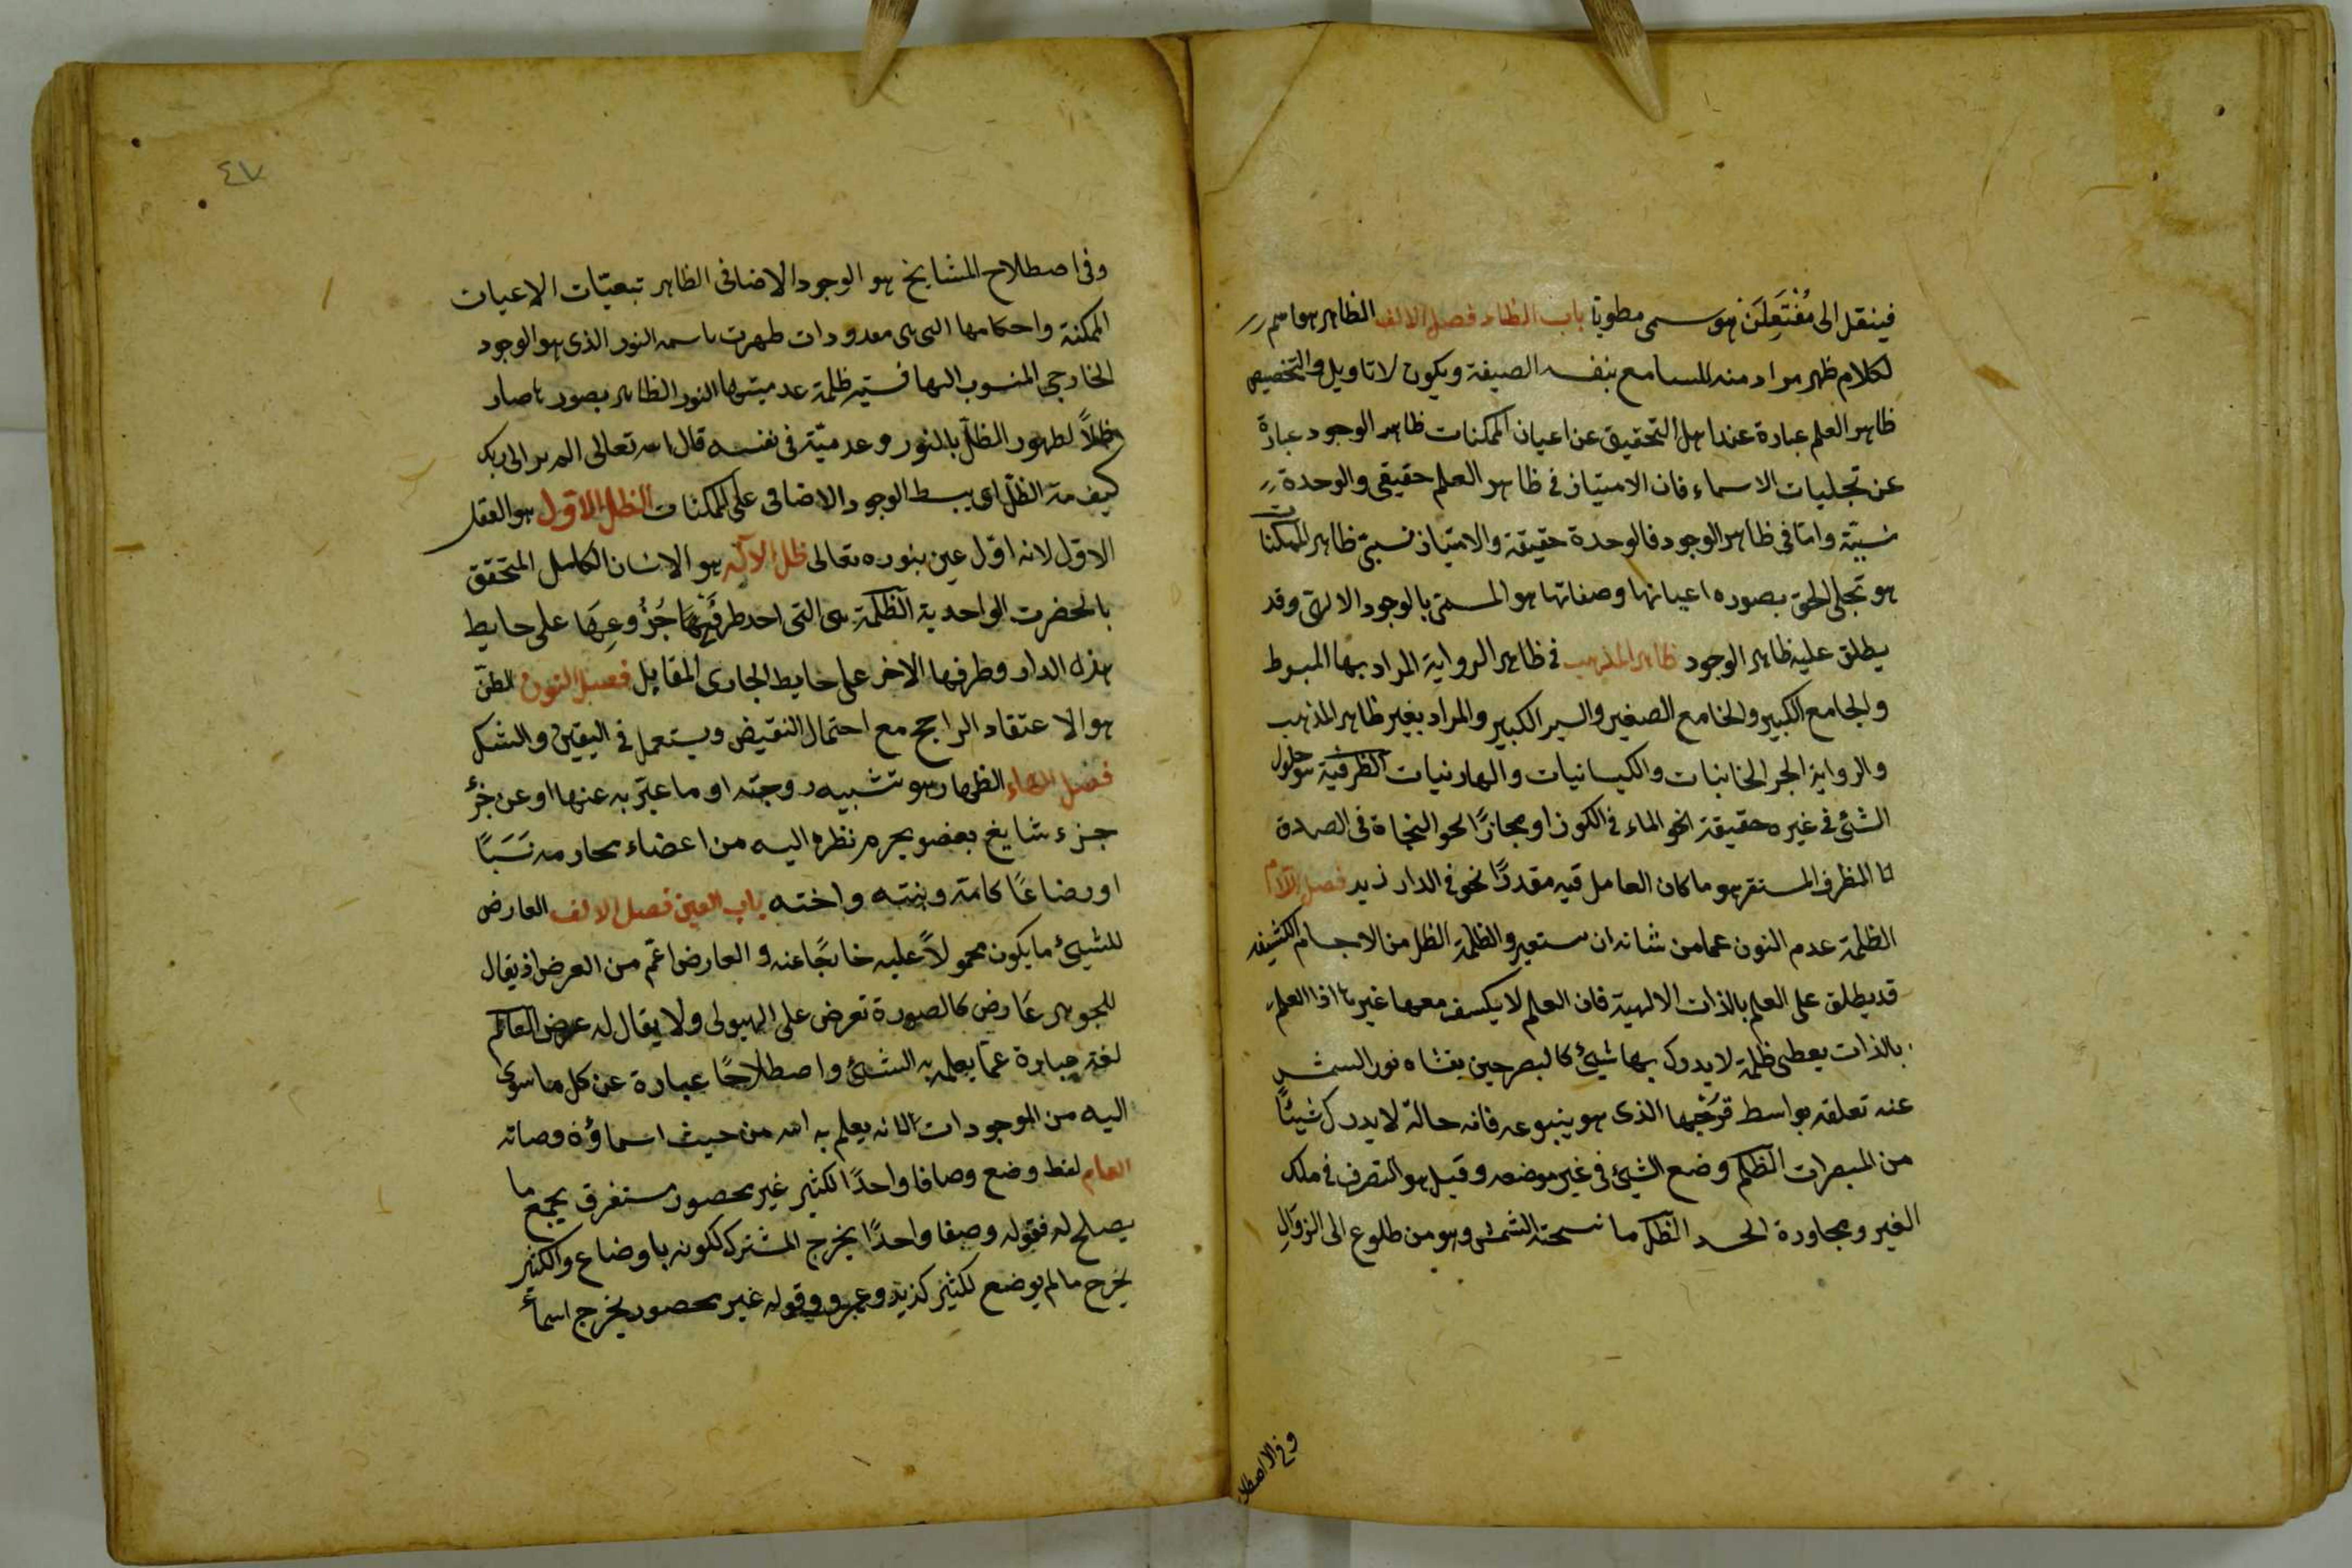 فينقل الى مُفْتَعِلَن هو سمى مطويا باب الظاء فصل الالف الظاهر هو اسم
لكلام ظهر مراد منه للسامع بنفس الصيغة ويكون لاتاويل والتخصيص
ظاهر العلم عبارة عند اهل التحقيق عن اعيان الممكنات ظاهر الوجود عبارة
عن تجليات الاسماء فان الامتياز فى ظاهر العلم حقيقى والوحدة
نسبيّة وامّا فى ظاهر الوجود فالوحدة حقيقة والامتياز نسبىّ ظاهر الممكنات
هو تجلى الحق بصوره اعيانها وصفاتها هو المسمّى بالوجود الالهىّ وقد
يطلق عليه ظاهر الوجود ظاهر المذهب فى ظاهر الرواية المراد بها المبسوط
والجامع الكبير والجامع الصغير والسير الكبير والمراد بغير ظاهر المذهب
والرواية الجرجانيات والكيسانيات والهارنيات الظرفية هو حلول
الشئ فى غيره حقيقة نحو الماء فى الكوز او مجازًا نحو النجاة فى الصدق
الظرف المستقر هو ما كان العامل فيه مقدرًا نحو فى الدار زيد فصل اللام
الظلمة عدم النور عما من شانه ان يستنير والظلمة الظل من الاجسام الكثيفه
قد يطلق على العلم بالذات الالهية فان العلم لا يكسف معها غيرها اذا العلم
بالذات يعطى ظلمة لا يدرك بها شيئ كالبصر حين يغشاه نور الشمس
عند تعلقه بواسط قرصها الذى هو ينبوعه فانه حالة لا يدرك شيئًا
من المبصرات الظلم وضع الشيئ فى غير موضعه وقيل هو التصرف فى ملك
الغير ومجاوزة الحد الظل ما نسخته الشمس وهو من طلوع الى الزوال
وفى الاصطلا
٤٧
وفى اصطلاح المشايخ هو الوجود الاضافى الظاهر تبعيّات الاعيان
الممكنة واحكامها التى هى معدودات ظهرت باسمه النور الذى هو الوجود
الخارجى المنسوب اليها فستير ظلمة عدميتها النور الظاهر بصورها صار
ظلاً لظهور الظلّ بالنور وعدميّته فى نفسه قال الله تعالى الم تر الى ربك
كيف مدّ الظلّ اى يبسط الوجود الاضافى على الممكنات الظل الاوّل هو العقل
الاوّل لانه اوّل عين بنوره تعالى ظل الاله هو الانسان الكامل المتحقق
بالحضرت الواحدية الظلمة هى التى احد طرفيها جُزُوعِهَا على حايط
هذه الدار وطرفها الاخر على حايط الجارى المقابل فصل النون الظنّ
هو الاعتقاد الراجح مع احتمال النقيض ويستعمل فى اليقين والشك
فصل الهاء الظهار هو تشبيه زوجته او ما عبّر به عنها او عن جزئ
جزء شايع بعضو يحرم نظره اليه من اعضاء محارمه نَسَبًا
او رضاعًا كامّه وبنته واخته باب العين فصل الالف العارض
للشيئ ما يكون محمولاً عليه خارجًا عنه والعارض اعّم من العرض اذ يقال
للجوهر عَارض كالصورة تعرض على الهيولى ولا يقال له عرض العالم
لغة عبارة عمّا يعلم به الشئ واصطلاحًا عبارة عن كل ما سوى
اليه من الموجودات لانه يعلم به الله من حيث اسماؤه وصفاته
العام لفظ وضع وصفا واحدًا لكثير غير محصور مستغرق يجمع ما
يصلح له فقوله وصفا واحدًا يخرج المشترك لكونه باوضاع والكثير
يخرج ما لم يوضع لكثير كزيد وعمرو وقوله غير محصور يخرج اسماءُ